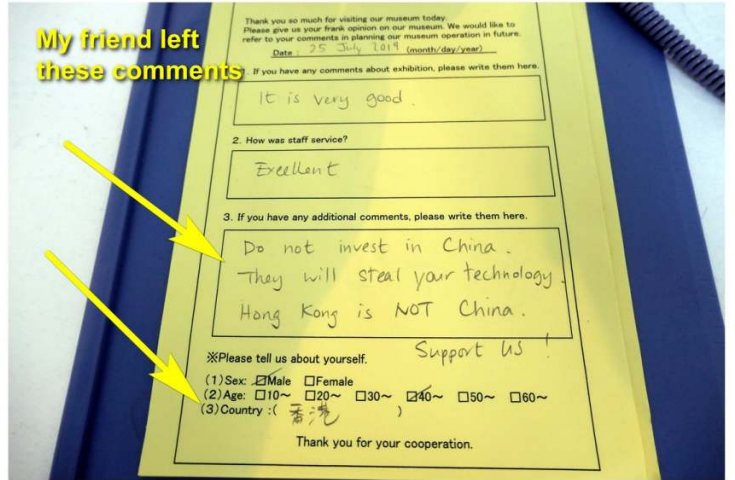 My friend left
these comments
Thank you so much for visiting our museum today.
Please give us your frank opinion on our museum. We would like to
refer to your comments in planning our museum operation in future.
Date : 25 July 2019 (month/day/year)
. If you have any comments about exhibition, please write them here.
It is very good.
2. How was staff service?
Excellent
3. If you have any additional comments, please write them here.
Do not invest in China.
They will steal your technology.
Hong Kong is NOT China.
Support us !
※Please tell us about yourself.
(1)Sex: ☑Male ☐Female
(2)Age: ☐10~ ☐20~ ☐30~ ☑40~ ☐50~ ☐60~
(3)Country :( 香港 )
Thank you for your cooperation.